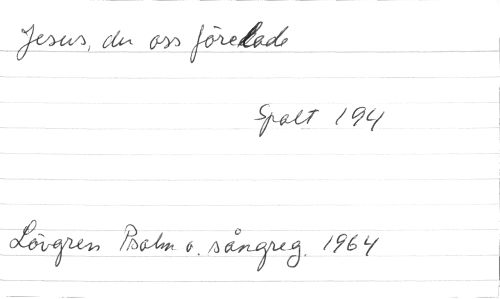 Jesus, du oss förelade
Spalt 194
Lövgren Psalm o. sångreg. 1964